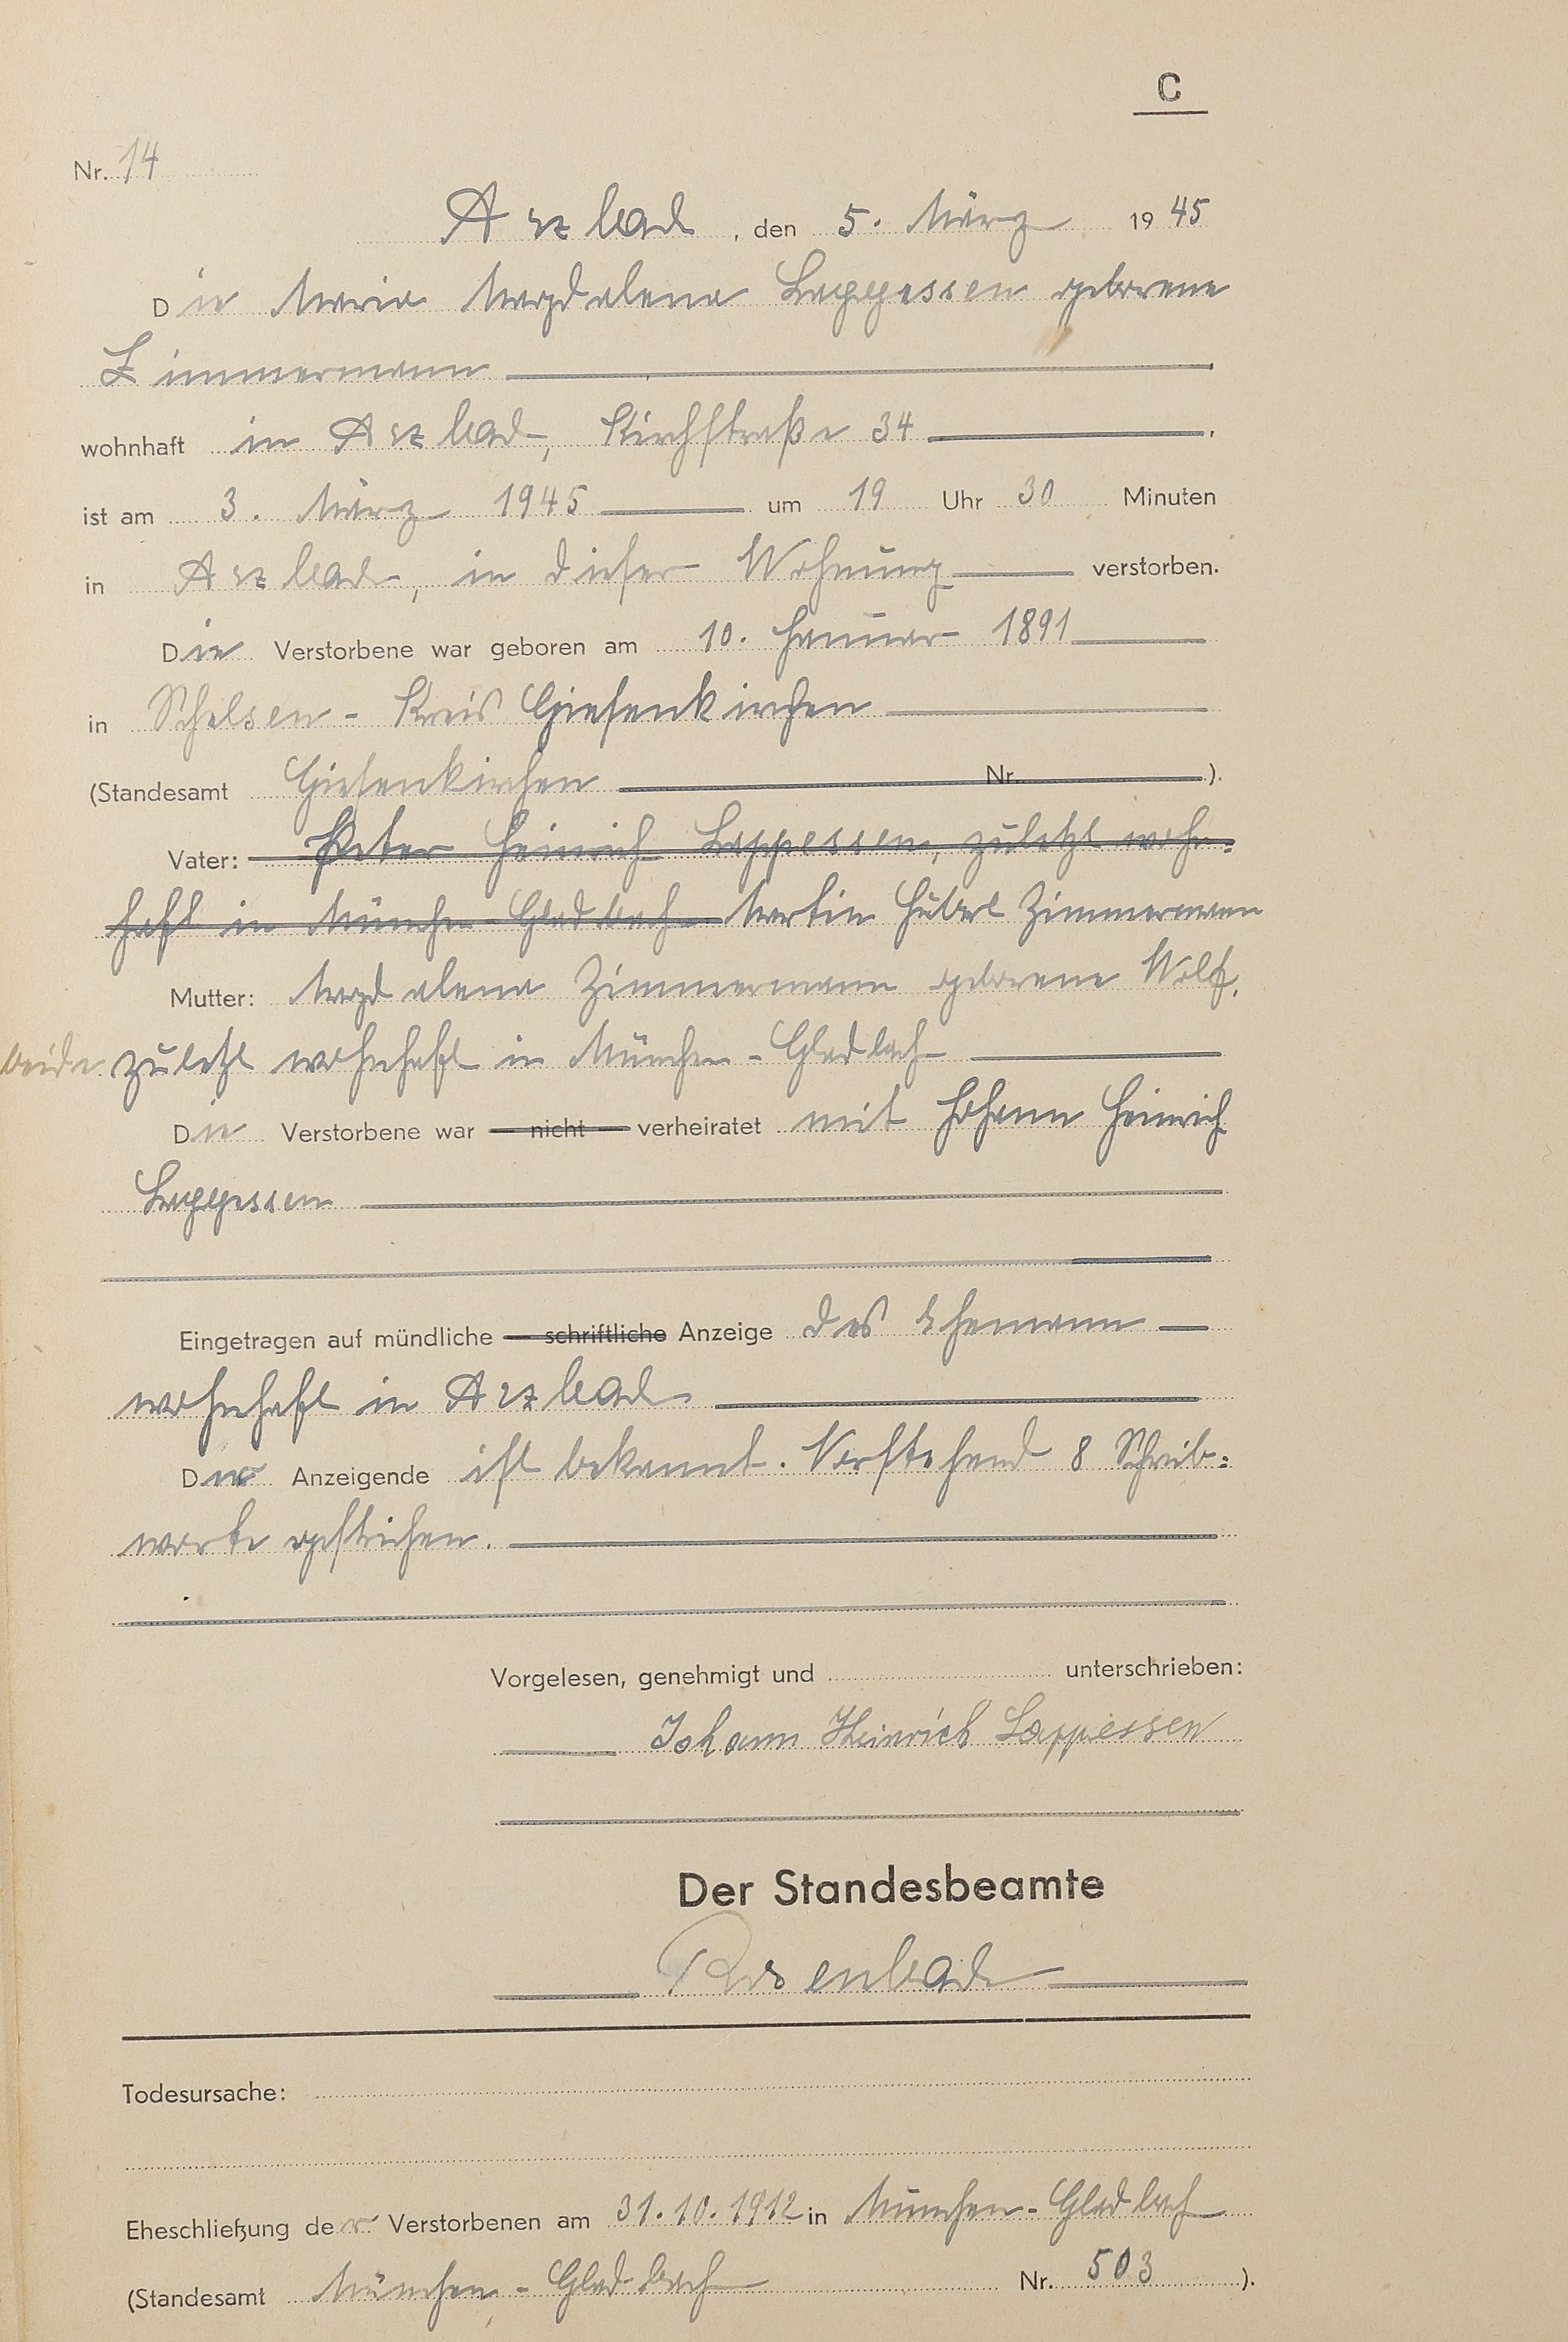 C
Nr. 14
Arzbach, den 5. März 1945
Die Maria Magdalena Lappessen geborene
Zimmermann
wohnhaft in Arzbach, Kirchstraße 34
ist am 3. März 1945 um 19 Uhr 30 Minuten
in Arzbach, in dieser Wohnung verstorben.
Die Verstorbene war geboren am 10. Januar 1891
in Schelsen - Kreis Giesenkirchen
(Standesamt Giesenkirchen Nr. ).
Vater: Peter Heinrich Lappessen, zuletzt wohn=
haft in München-Gladbach Martin Hubert Zimmermann
Mutter: Magdalena Zimmermann geborene Wolf,
beide zuletzt wohnhaft in München-Gladbach
Die Verstorbene war nicht verheiratet mit Johann Heinrich
Lappessen
Eingetragen auf mündliche schriftliche Anzeige des Ehemann
wohnhaft in Arzbach
Der Anzeigende ist bekannt. Vorstehend 8 Schreib=
worte gestrichen.
Vorgelesen, genehmigt und unterschrieben:
Johann Heinrich Lappessen
Der Standesbeamte
Rosenbach
Todesursache:
Eheschließung der Verstorbenen am 31.10.1912 in München-Gladbach
(Standesamt München-Gladbach Nr. 503 ).